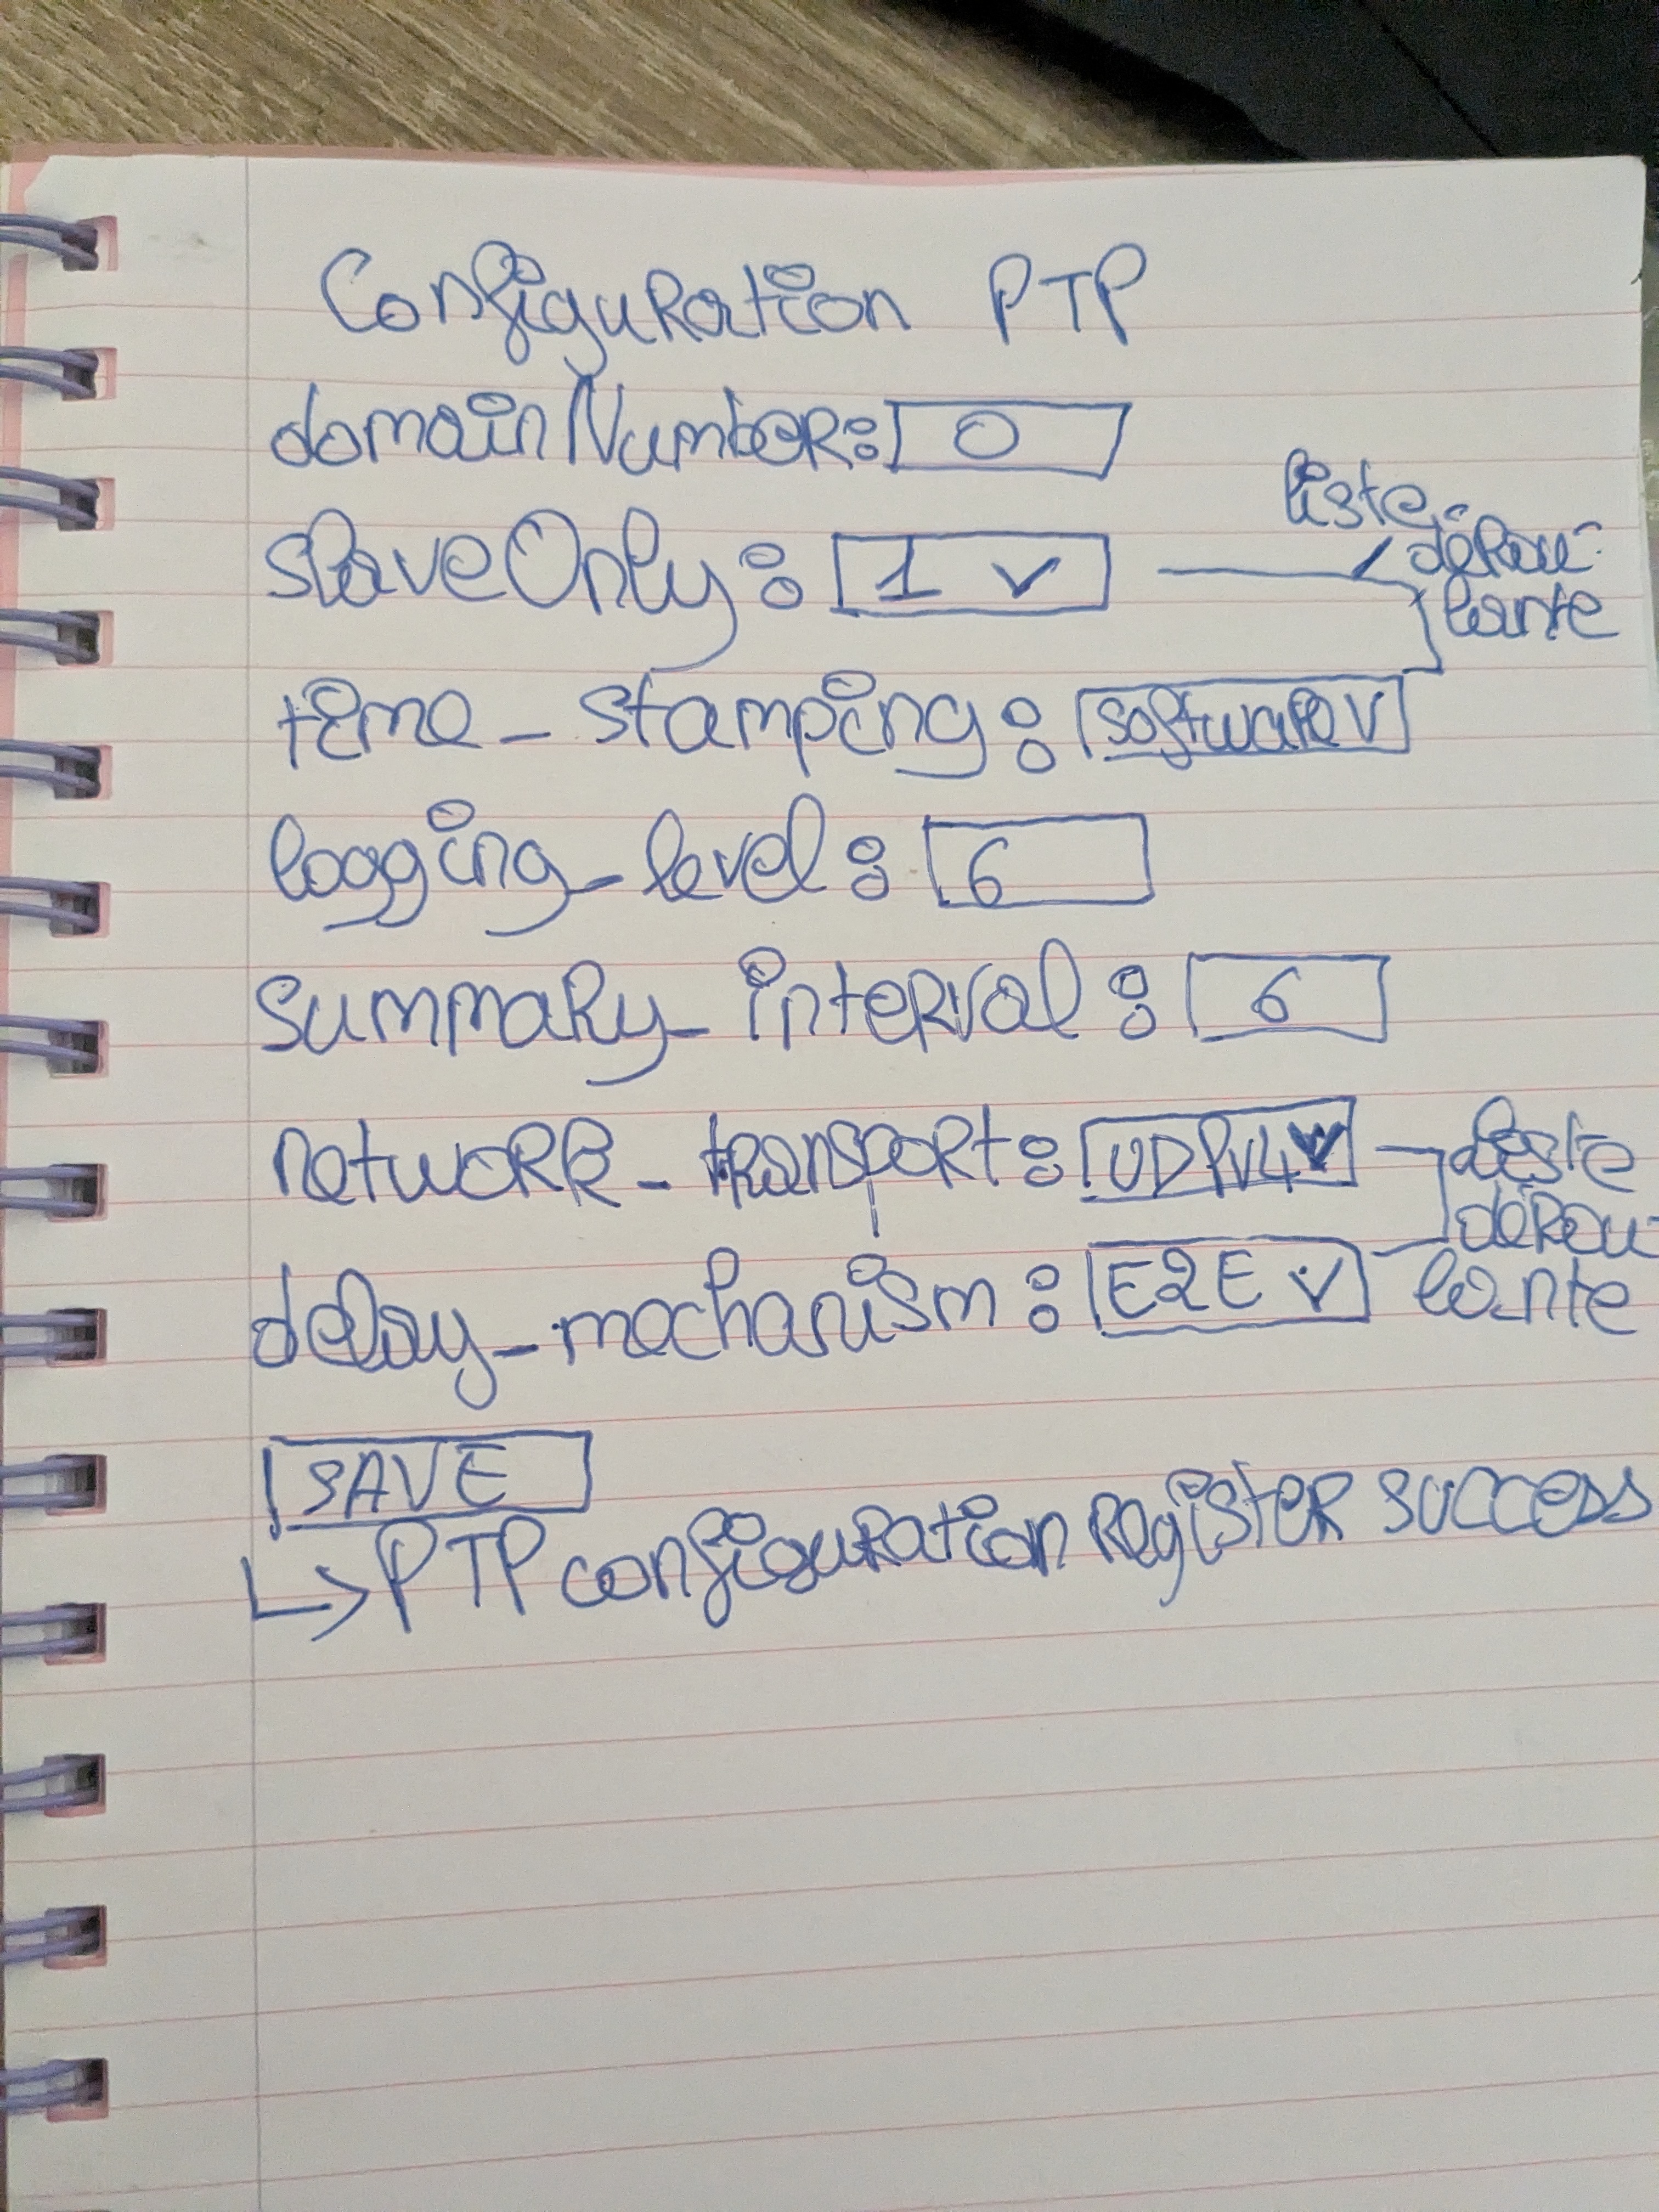 Configuration PTP
domainNumber: 0
slaveOnly: 1
liste
dérou-
lante
time_stamping: software
logging_level: 6
summary_interval: 6
network_transport: UDPv4
liste
dérou-
lante
delay_mechanism: E2E
SAVE
↳ PTP configuration register success